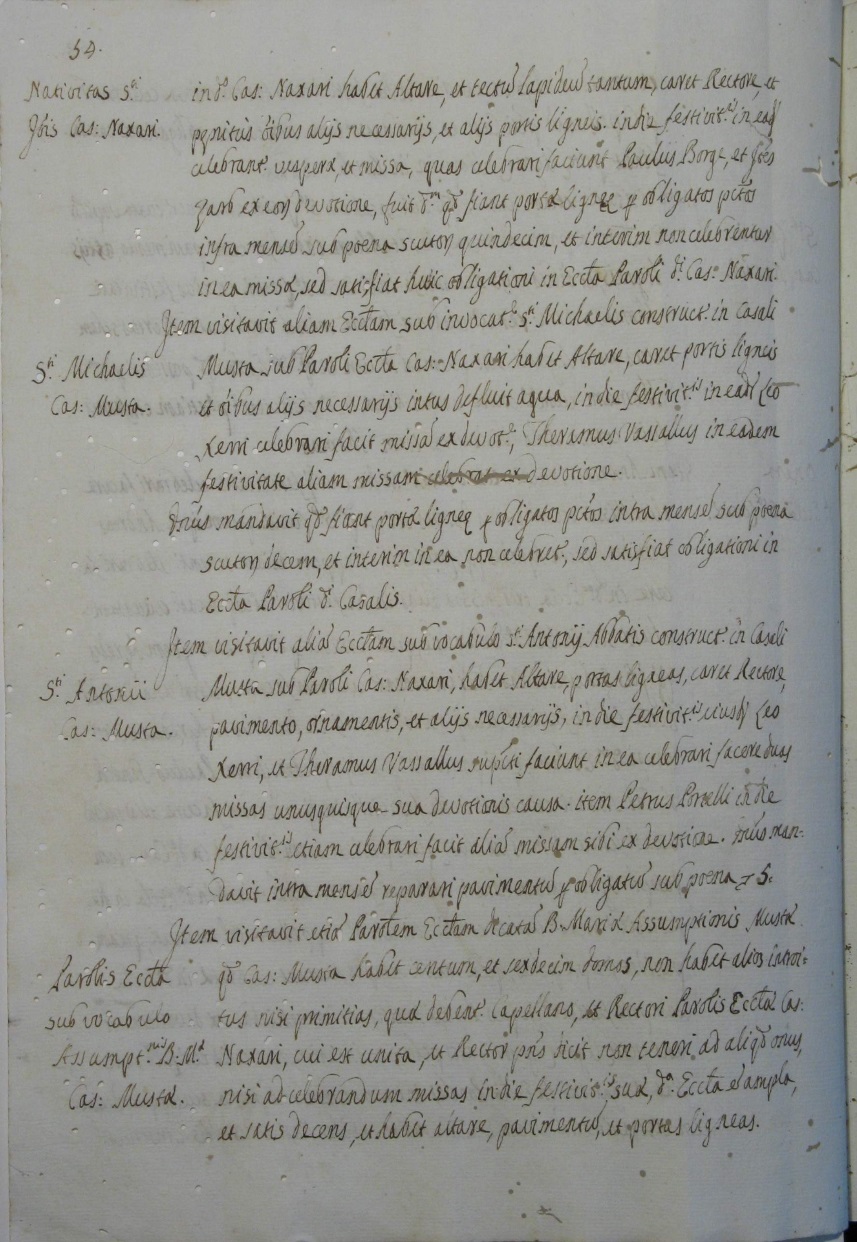 54.
Nativitas S.ti
Jõis Cas: Naxari.
in d.º Cas: Naxari habet Altare, et tectũ lapideũ tantum, caret Rectore, et
penitus õibus alijs necessarijs, et alijs portis ligneis. in die festivit.tis in eađ
celebrant.r vesperæ, et missa, quas celebrari faciunt Paulus Borg, et Jões
Zarb ex eoꝝ devotione, fuit d.m qđ fiant portæ ligneę ꝑ obligatos pctõs
infra mensẽ sub poena scutoꝝ quindecim, et interim non celebrentur
in ea missæ, sed satisfiat huic obligationi in Eccta Paroli d.i Cas: Naxari.
Item visitavit aliam Ecctam sub invocat.e S.ti Michaelis construct. in Casali
S.ti Michaelis
Cas: Musta.
Musta sub Paroli Eccta Cas: Naxari habet Altare, caret portis ligneis
et õibus alijs necessarijs intus defluit aqua, in die festivit.tis in eađ Leo
Xerri celebrari facit missã ex devot.e, Theramus Vassallus in eadem
festivitate aliam missam celebrat ex devotione.
Dñus mandavit qđ fiant portæ ligneę ꝑ obligatos pctõs intra mensẽ sub poena
scutoꝝ decem, et interim in ea non celebret.r, sed satisfiat obligationi in
Eccta Paroli d.i Casalis.
Item visitavit aliã Ecctam sub vocabulo S.ti Antonij Abbatis construct. in Casali
S.ti Antonii
Cas: Musta.
Musta sub Paroli Cas: Naxari, habet Altare, portas ligneas, caret Rectore,
pavimento, ornamentis, et alijs necessarijs, in die festivit.tis eiusđ Leo
Xerri, et Theramus Vassallus faciunt in ea celebrari facere duas
missas unusquisque sua devotionis causa. item Petrus Portelli in die
festivit.tis etiam celebrari facit aliã missam sibi ex devotione. Dñus man-
davit intra mensẽ reparari pavimentũ ꝑ obligatũ sub poena 5.
Item visitavit etiã Parolem Ecctam dicatã B. Mariæ Assumptionis Mustæ
Parolis Eccta
sub vocabulo
Assumpt.nis B. M.æ
Cas: Mustæ.
qđ Cas: Musta habet centum, et sexdecim domos, non habet alios introi-
tus nisi primitias, quæ debent.r Capellano, et Rectori Parolis Ecctæ Cas:
Naxari, cui est unita, et Rector pñs dicit non teneri ad aliqđ onus,
nisi ad celebrandum missas in die festivit.tis suæ, d.a Eccta ẽ ampla,
et satis decens, et habet altare, pavimentũ, et portas ligneas.